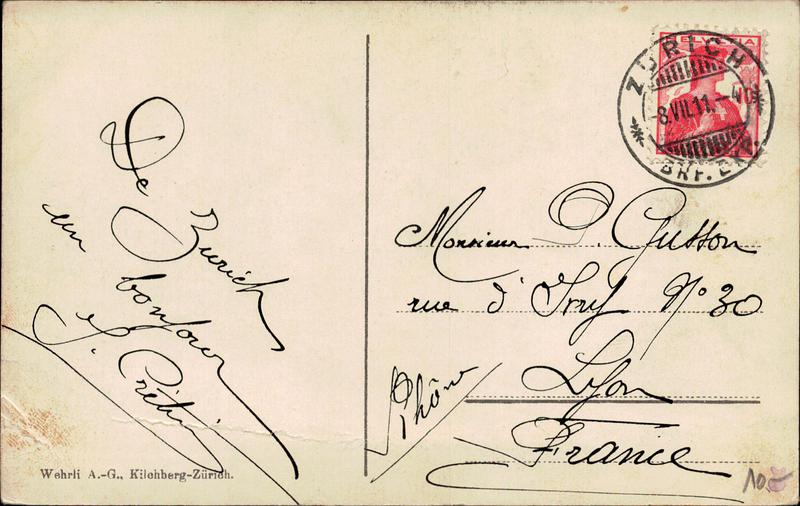 De Zurich
un bonjour
HELVETIA
ZÜRICH
8.VII.11.–4
BRF. EXP.
Monsieur P. Gusson
rue d'Ivry N° 30
Lyon
(Rhône)
France
Wehrli A.-G., Kilchberg-Zürich.
10.-